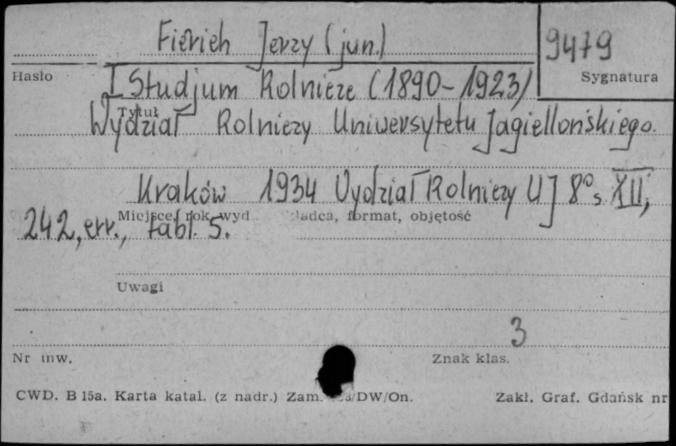 Fierich Jerzy (jun.)
9479
Hasło
Sygnatura
I Studjum Rolnicze (1890-1923)
Tytuł
Wydział Rolniczy Uniwersytetu Jagiellońskiego.
Kraków 1934 Wydział Rolniczy UJ 8° s. XII,
Miejsce, rok wyd ładca, format, objętość
242, err., tabl. 5.
Uwagi
3
Nr inw.
Znak klas.
CWD. B 15a. Karta katal. (z nadr.) Zam. /DW/On.
Zakł. Graf. Gdańsk nr